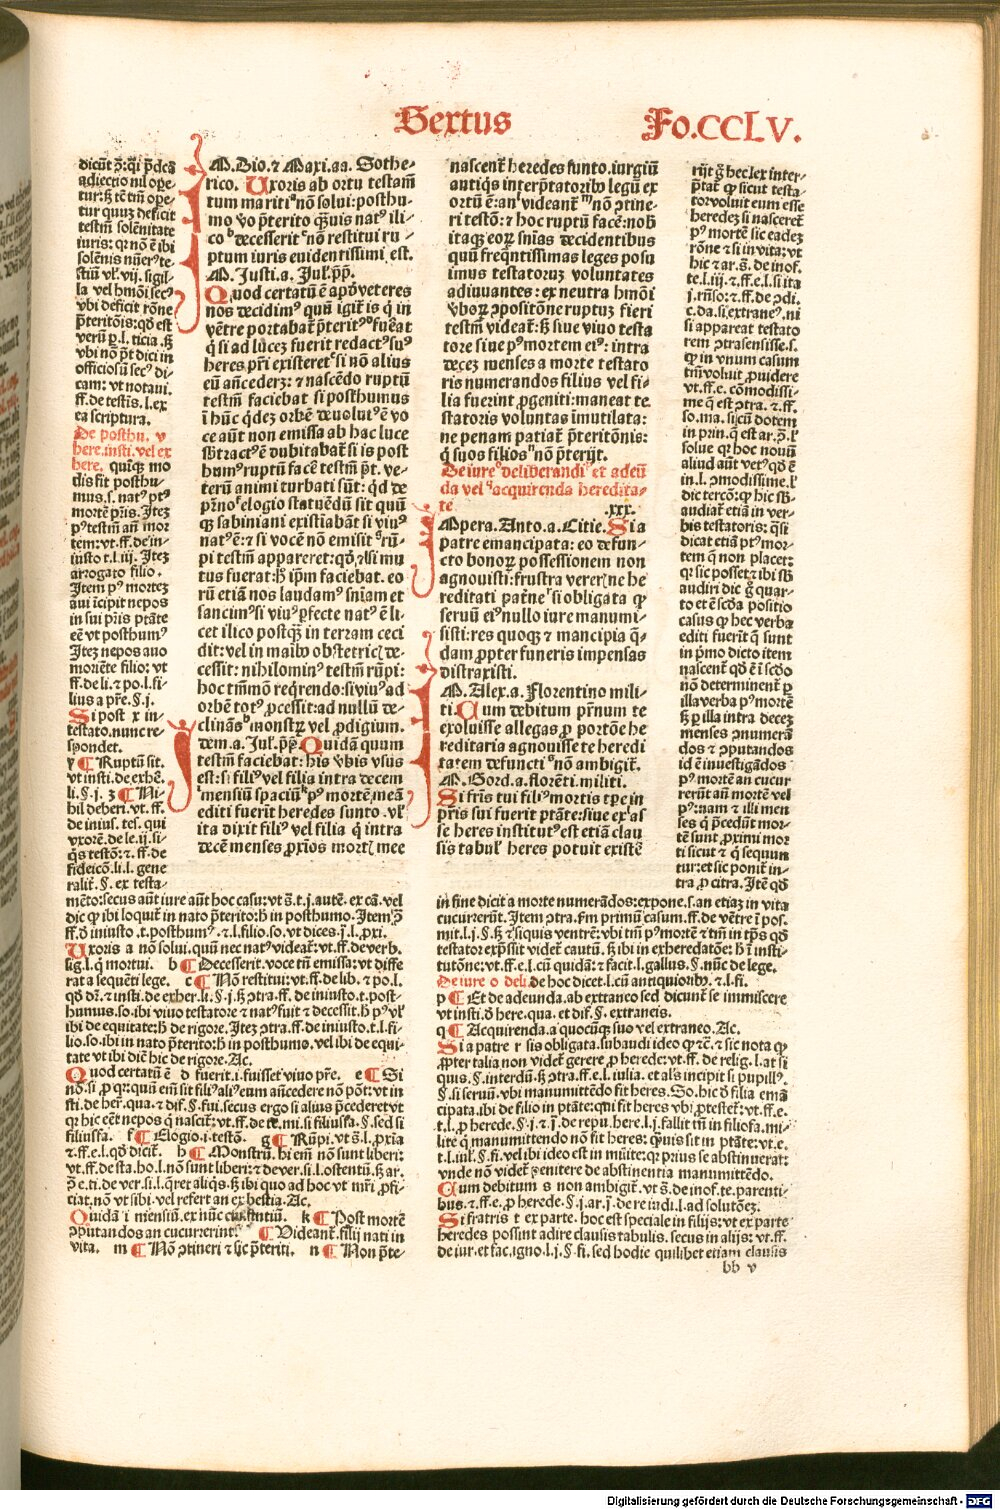 Sextus
Fo.CCLV.
dicūt ꝙ: qͥ p̄dcā
adiectio nil ope-
tur: ꝫ tē tm̄ ope-
tur quuꝫ deficit
testm̄ solēnitate
iuris: qꝛ nō ē ibi
solēnis nūer⁹ te-
stiū vl̓.vij. sigil-
la vel hm̄oi sec⁹
vbi deficit rōne
p̄teritōis: qd̓ est
officiosū sec⁹ di-
cam: vt notaui.
ff. de testis. l. ex
ea scriptura.
De posthu. v
here. insti. vel ex
here. quīqꝫ mo
dis fit posthu-
mus. s. nat⁹ pt⁹
mortē pr̄is. Iteꝫ
p⁹ testm̄ an̄ mor
tem: vt. ff. de in-
iusto t. l. iij. Iteꝫ
arrogato filio.
Item p⁹ morteꝫ
aui īcipit nepos
in sui pr̄is ptāte
eē vt posthum⁹
Iteꝫ nepos auo
moriēte filio: vt
ff. de li. ⁊ po. l. fi-
lius a pr̄e. §. j.
Si post x in-
testato. nunc re-
spondet.
y ¶ Ruptū sit.
vt insti. de exhē.
li. §. j. z ¶ Ni-
hil deberi. vt. ff.
de inius. tes. qui
vxorē. de le. ij. si-
q̇s testō: ⁊. ff. de
fideicō. li. l. gene
ralit̄. §. ex testa-
M. Dio. ⁊ Maxi. aa. Sothe-
rico. Uxoris ab ortu testam̄
tum mariti ᵃnō solui: posthu-
mo vo p̄terito qͣuis nat⁹ ili-
co ᵇdecesserit ᶜnō restitui ru-
ptum iuris euidentissimi est.
M. Justi. a. Jul̓. p̄p̄.
Quod certatū ē apd̓ veteres
nos decidim⁹ quū igit̄ is q̓ in
vētre portabat̄ p̄terit⁹ ᵈfuēat
q̓ si ad luceꝫ fuerit redact⁹ su⁹
heres pr̄i existeret ᵉsi nō alius
eū an̄cederꝫ: ⁊ nascēdo ruptū
testm̄ faciebat si posthumus
ī hūc q̓deꝫ orbē deuolut⁹ ē vo
ce aūt non emissa ab hac luce
sb̄tract⁹ ē dubitabat̄ si is post
hum⁹ ruptū facē testm̄ p̄t. ve-
terū animi turbati sūt: qd̓ de
pr̄no ᶠelogio statuēdū sit quū
qꝫ sabiniani existīabāt si viu⁹
nat⁹ ē: ⁊ si vocē nō emisit ᵍrū-
pi testm̄ appareret: qd̓ ⁊ lsi mu
tus fuerat: h̄ ip̄m faciebat. eo
rū etiā nos laudam⁹ snīam et
sancim⁹ si viu⁹ ꝑfecte nat⁹ ē li-
cet ilico postqͣꝫ in terram ceci
dit: vel in maib⁹ obstetricꝭ de-
cessit: nihilomin⁹ testm̄ rūpi:
hoc tm̄mō reqͥrendo: si viu⁹ ad
orbē tot⁹ ꝓcessit: ad nullū de-
clinās ʰmonstrꝫ vel ꝓdigium.
Idem. a. Jul̓. p̄p̄. Quidā quum
testm̄ faciebat: his v̓bis vsus
est: si fili⁹ vel filia intra decem
mēsiū spaciū ᵏp⁹ mortē meā
editi fuerīt heredes sunto. vl̓
ita dixit fili⁹ vel filia q̓ intra
decē menses ꝓxīos mortꝭ mee
nascent̄ heredes sunto. iurgiū
antiq̓s interp̄tatorib⁹ legū ex
ortū ē: an ˡvideant̄ ᵐnō ꝯtine-
ri testō: ⁊ hoc ruptū facē: nob̓
itaqꝫ eoꝝ snīas decidentibus
quū freq̄ntissimas leges posu
imus testatoruꝫ voluntates
adiuuantes: ex neutra hm̄oi
v̓boꝝ ꝓpositōne ruptuꝫ fieri
testm̄ videat̄: ꝫ siue viuo testa
tore siue p⁹ mortem ei⁹: intra
decez menses a morte testato
ris numerandos filius vel fi-
lia fuerint ꝓgeniti: maneat te
statoris voluntas imutilata:
ne penam patiat̄ p̄teritōnis:
q̓ suos filios ⁿnō p̄terijt.
De iure ᵒdeliberandi ᵖet adeū
da vel ᑫacquirenda heredita-
te .xxx.
Impera. Anto. a. Citie. Si a
patre emancipata: eo defun-
cto bonoꝝ possessionem non
agnouisti: frustra vererꝭ ne he
reditati pat̄ne ʳsi obligata ꝙ
seruū ei⁹ nullo iure manumi-
sisti: res quoqꝫ ⁊ mancipia q̄-
dam ꝓpter funeris impensas
distraxisti.
M. Alex. a. Florentino mili-
ti. Cum debitum pr̄num te
exoluisse allegas ꝓ portōe he
reditaria agnouisse te heredi
tatem defuncti ˢnō ambigit̄.
M. Gord. a. florēti. militi.
Si fr̄is tui fili⁹ mortis tp̄e in
pr̄is sui fuerit ptāte: siue ex ᵗas
se heres institut⁹ est etiā clau
sis tabul̓ heres potuit existē
rijt̄ ḡ hec lex inter-
p̄tat̄ ꝙ sicut testa-
tor voluit eum esse
heredeꝫ si nasceret̄
p⁹ mortē sic eadeꝫ
rōne ⁊ si in vita: vt
hic ⁊ ar. s. de inof.
te. l. iij. ⁊. ff. e. l. si ita
j. rn̄so: ⁊. ff. de ꝯdi.
c. da. si extrane⁹. ni
si appareat testato
rem ꝯtra sensisse. s.
ꝙ in vnum casum
tm̄ voluit ꝓuidere
vt. ff. e. cōmodissi-
me q̄ est ꝯtra. ⁊. ff.
so. ma. si cū dotem
in prin. q̄ est ar. ꝙ l̓
solue qꝛ hoc nouū
aliud aūt vet⁹ qd̓ ē
in. l. ꝯmodissime. l̓
dic tercō: ꝙ hic sb̓-
audiat̄ etiā in ver-
bis testatoris: q̄si
dicat etiā pt⁹ mor-
tem q̄ non placet:
qꝛ sic posset ⁊ ibi sb̓
audiri dic ḡ quar-
to et ē scd̓a positio
casus ꝙ hec verba
editi fuerīt q̄ sunt
in p̄mo dicto item
nascent̄ qd̓ ē ī scd̓o
nō determinent̄ ꝑ
illa verba p⁹ mortē
ꝫ ꝑ illa intra deceꝫ
menses ꝯnumerā
dos ⁊ ꝯputandos
id ē inuestigādos
p⁹ mortē an cucur
rerūt an̄ mortē vel
p⁹: nam ⁊ illi men
ses q̓ p̄cedūt mor-
tē sunt ꝓximi mor
ti sicut ⁊ q̓ sequun
tur: et sic ponit̄ in-
tra ꝓ citra. Itē qd̓
mēto: secus aūt iure aūt hoc casu: vt s̄. t. j. autē. ex cā. vel
dic ꝙ ibi loquit̄ in nato p̄terito: h̄ in posthumo. Item ꝯͣ
ff. d̓ iniusto. t. posthum⁹. ⁊. l. filio. so. vt dices. j. l. ꝓxi.
Uxoris a nō solui. quū nec nat⁹ videat̄: vt. ff. de verb.
sig. l. q̓ mortui. b ¶ Decesserit. voce tn̄ emissa: vt diffe
rat a sequēti lege. c ¶ Nō restitui: vt. ff. de lib. ⁊ po. l.
qd̓ dr̄. ⁊ insti. de exher. li. §. j. ꝫ ꝯtra. ff. de iniusto. t. post-
humus. so. ibi viuo testatore ⁊ nat⁹ fuit ⁊ decessit. h̄ p⁹ vl̓
ibi de equitate: h̄ de rigore. Iteꝫ ꝯtra. ff. de iniusto. t. l. fi-
lio. so. ibi in nato p̄terito: h̄ in posthumo. vel ibi de equi-
tate vt ibi diē hic de rigore. Ac.
Quod certatū ē d fuerit. i. fuisset viuo pr̄e. e ¶ Si
nō. si ꝓ qꝛ: quū em̄ sit fili⁹ ali⁹ eum an̄cedere nō pōt: vt in
sti. de her. qua. ⁊ dif. §. fui. secus ergo si alius p̄cederet vt
qꝛ hic eēt nepos q̓ nascit̄: vt. ff. de re. mi. si filiusfa. §. sed si
filiusfa. f ¶ Elogio. i. testō. g ¶ Rūpi. vt s̄. l. ꝓxīa
⁊. ff. e. l. qd̓ dicit̄. h ¶ Monstrū. hi em̄ nō sunt liberi:
vt. ff. de sta. ho. l. nō sunt liberi: ⁊ de ver. si. l. ostentū. ꝫ ar.
ꝯͣ e. ti. de ver. si. l. q̄ret aliq̇s. ꝫ ibi quo ad hoc vt mr̄i ꝓfi-
ciat. nō vt sibi. vel refert an ex bestia. Ac.
Quidā i mensiū. ex nūc currentiū. k ¶ Post mortē
ꝯputandos an cucurrerint. l ¶ Videant̄. filij nati in
vita. m ¶ Nō ꝯtineri ⁊ sic p̄teriti. n ¶ Non p̄te-
in fine dicit a morte numerādos: expone. s. an etiaꝫ in vita
cucurrerūt. Item ꝯtra. ꝫm primū casum. ff. de vētre ī pos.
mit. l. j. §. ꝫ ⁊ si quis ventrē: vbi tm̄ p⁹ mortē ⁊ tm̄ in tp̄s qd̓
testator exp̄ssit videt̄ cautū. ꝫ ibi in exheredatōe: h̄ ī insti-
tutōne: vt. ff. e. l. cū quidā: ⁊ facit. l. gallus. §. nūc de lege.
De iure o deli. de hoc dicet. l. cū antiquiorib⁹. ⁊. l. fi.
p ¶ Et de adeunda. ab extraneo sed dicunt̄ se immiscere
vt insti. d̓ here. qua. et dif. §. extraneis.
q ¶ Acquirenda. a quocūqꝫ suo vel extraneo. Ac.
Si a patre r sis obligata. subaudi ideo ꝙ ⁊ē. ⁊ sic nota ꝙ
ꝓpter talia non videt̄ gerere ꝓ herede: vt. ff. de relig. l. at si
quis. §. interdū. ꝫ ꝯtra. ff. e. l. iulia. et al̓s incipit si pupill⁹.
§. si seruū. vbi manumittēdo fit heres. So. hic d̓ filia emā
cipata. ibi de filio in ptāte: qui fit heres vbi ꝓtestet̄: vt. ff. e.
t. l. ꝓ herede. §. j. ⁊ j. de repu. here. l. j. fallit tm̄ in filiofa. mi-
lite q̓ manumittendo nō fit heres: qͣuis sit in ptāte: vt. e.
t. l. iul̓. §. fi. vel ibi ideo est in milite: qꝛ prius se abstinuerat:
vnde nō videt̄ penitere de abstinentia manumittēdo.
Cum debitum s non ambigit̄. vt s̄. de inof. te. parenti-
bus. ⁊. ff. e. ꝓ herede. §. j. ar. j. de rei vdi. l. ad solutōeꝫ.
Si fratris t ex parte. hoc est speciale in filijs: vt ex parte
heredes possint adire clausis tabulis. secus in alijs: vt. ff.
de iur. et fac. igno. l. j. §. fi. sed hodie quilibet etiam clausis
bb v
Digitalisierung gefördert durch die Deutsche Forschungsgemeinschaft - DFG